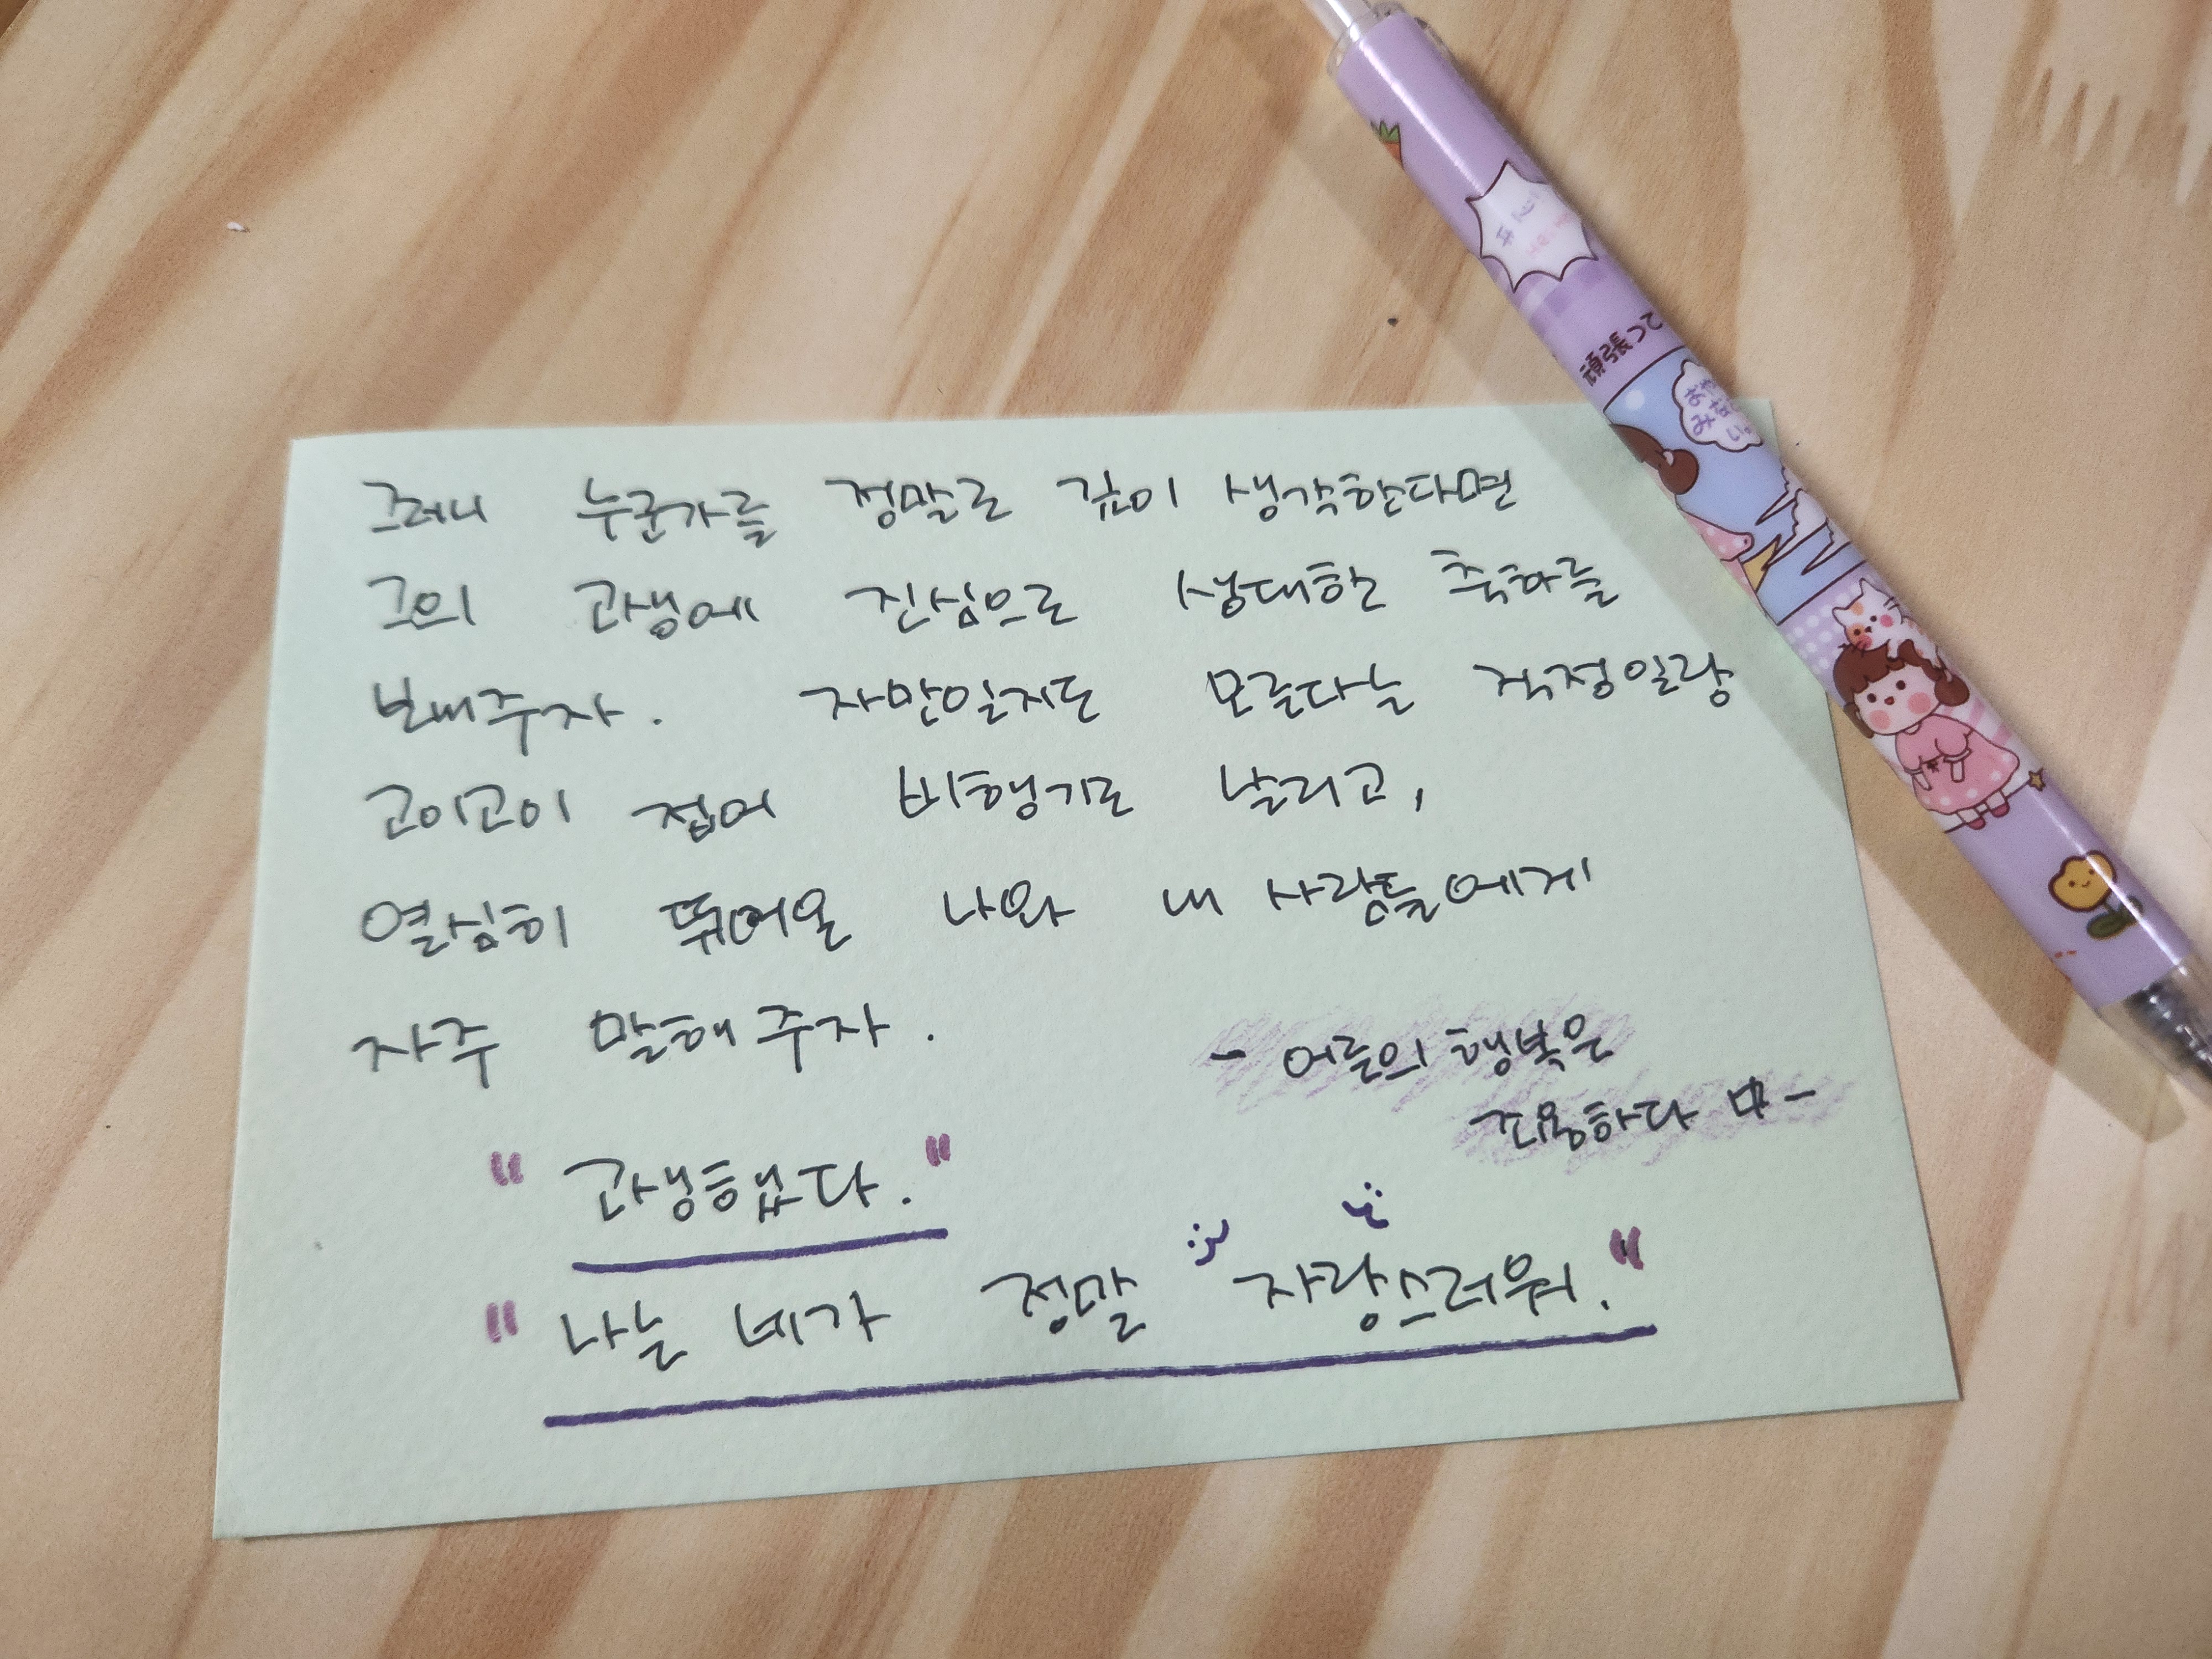 그러니 누군가를 정말로 깊이 생각한다면
그의 고생에 진심으로 성대한 축하를
보내주자. 자만일지도 모른다는 걱정일랑
고이고이 접어 비행기로 날리고,
열심히 뛰어온 나와 내 사람들에게
자주 말해 주자.
- 어른의 행복은
조용하다 中 -
"고생했다."
"나는 네가 정말 자랑스러워."
頑張って
おや
みな
い。